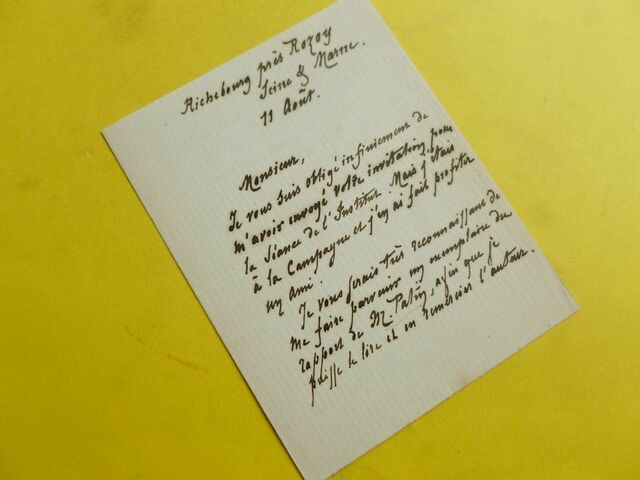 Richebourg près Rozoy
Seine & Marne.
11 Août.
Monsieur,
Je vous suis obligé infiniement de
m'avoir envoyé votre invitation pour
la Séance de l'Institut. Mais j'étais
à la Campagne et j'en ai fait profiter
un ami.
Je vous serais très reconnaissant de
me faire parvenir un exemplaire du
rapport de M. Patin, afin que je
puisse le lire et en remercier l'auteur.